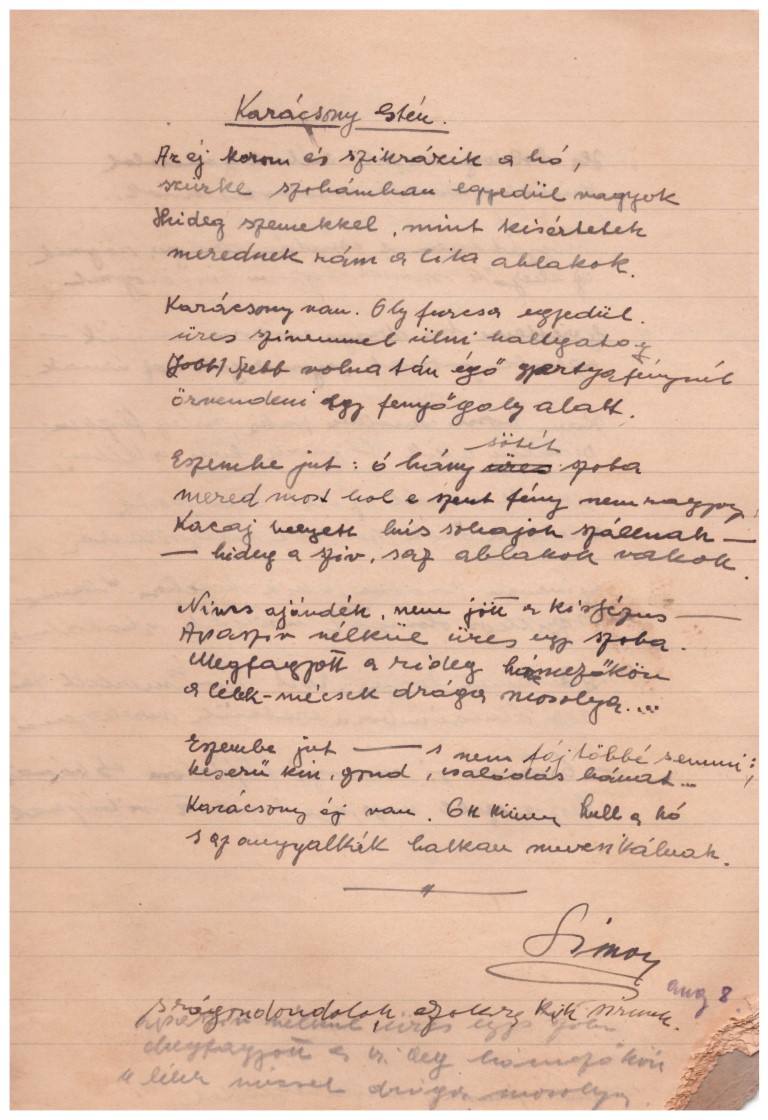 Karácsony Estén.
Az éj korom és szikrázik a hó,
szürke szobámban egyedül vagyok
Hideg szemekkel, mint kisértetek
merednek rám a lila ablakok.
Karácsony van. Oly furcsa egyedül.
üres szivemmel ülni hallgatag
(Jobb) Szebb volna tán égő gyertyafénynél
örvendeni egy fenyőgaly alatt.
sötét
Eszembe jut: ó hány üres szoba
mered most hol e szent fény nem ragyog,
Kacaj helyett bús sohajok szállnak —
— hideg a sziv, s az ablakok vakok.
Nincs ajándék, nem jött a kisjézus —
Apasziv nélkül üres egy szoba.
Megfagyott a rideg hómezőkön
a lélek-mécsek drága mosolya...
Eszembe jut — s nem fáj többé semmi;
keserű kin, gond, csalódás bánat...
Karácsony éj van. Ott künn hull a hó
s az angyalkák halkan muzsikálnak.
Simon
aug 8.
azokra kik sirnak.
nélkül üres egy szoba
Megfagyott a rideg hómezőkön
a lélek drága mosolya